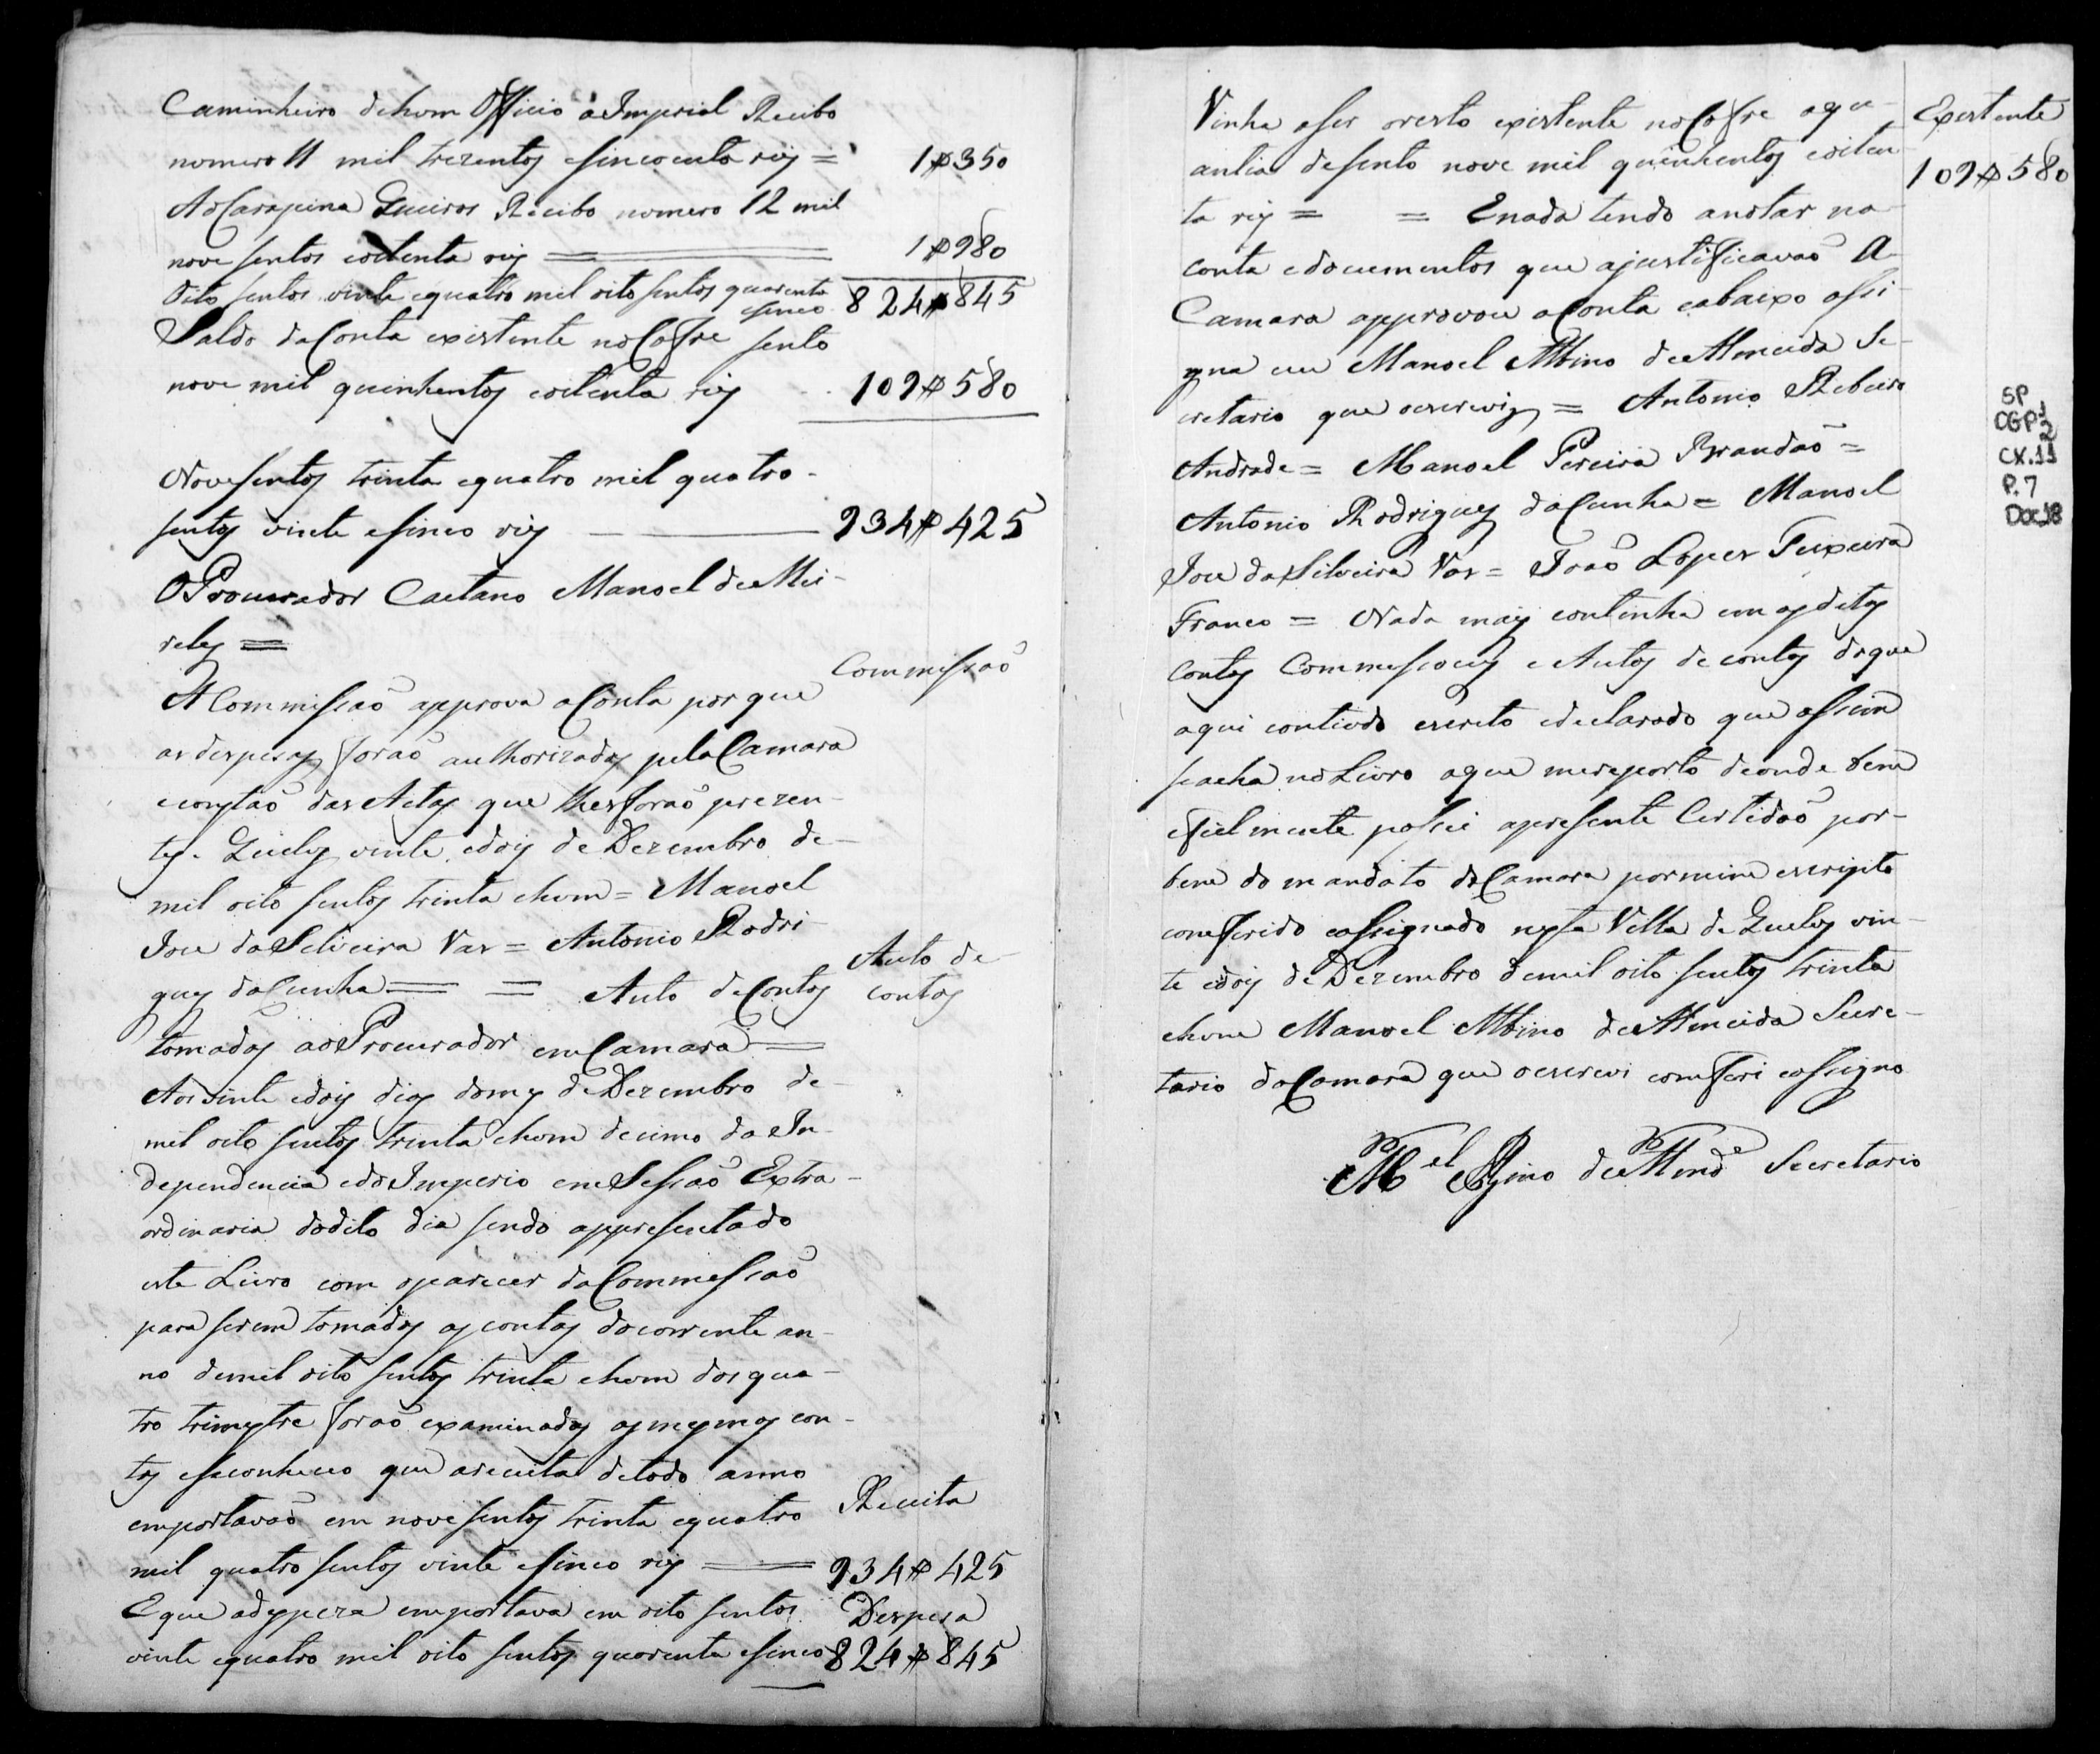 Caminheiro dehum Officio a Imperial Recibo
nomero 11 mil trezentos esincoenta reis = 1$350
Ao Carapina Queiros Recibo nomero 12 mil
nove sentos eoitenta reis = 1$980
Oito sentos vinte equatro mil oito sentos quarenta esinco 824$845
Saldo da Conta existente no Cofre sento
nove mil quinhentos eoitenta reis 109$580
Nove sentos trinta equatro mil quatro-
sentos vinte esinco reis 934$425
O Procurador Caetano Manoel de Mei-
reles =
Commissaõ
A Commissaõ approva a Conta por que
as despesas foraõ authorizadas pela Camara
econstaõ das Actas que lhes foraõ prezen-
tes. Queluz vinte edois de Dezembro de
mil oito sentos trinta ehum = Manoel
Joze da Silveira Vas = Antonio Rodri-
gues da Cunha = = Auto de Contas
Auto de
contas
tomadas ao Procurador em Camara =
Aos vinte edois dias do mes de Dezembro de
mil oito sentos trinta ehum decimo da In-
dependencia edo Imperio em Sessaõ Extra-
ordinaria do dito dia sendo appresentado
este Livro com oparecer da Commessaõ
para serem tomadas as contas do corrente an-
no demil oito sentos trinta ehum dos qua-
tro trimestre foraõ examinadas as mesmas con-
tas eseconheceo que areceita detodo anno
Receita
emportavaõ em nove sentos trinta equatro
mil quatro sentos vinte esinco reis = 934$425
E que adespeza emportava em oito sentos Despesa
vinte equatro mil oito sentos quarenta esinco 824$845
Vinha aser oresto existente no Cofre aqu- Existente
antia desento nove mil quinhentos eoiten- 109$580
ta reis = = E nada tendo anotar na
conta edocumentos que ajustificavaõ A
Camara approvou a Conta eabaixo assi-
gna eu Manoel Albino de Almeida Se-
cretario que oescrevi = Antonio Ribeiro
Andrade = Manoel Pereira Brandaõ =
Antonio Rodrigues da Cunha = Manoel
Joze da Silveira Vas = Joaõ Lopes Teixeira
Franco = Nada mais continha em as ditas
Contas Commessoens e Autos de contas do que
aqui contiudo escrito edeclarado que assim
seacha no Livro aque mereporto deonde bem
efielmente passei apresente Certidaõ por-
bem do mandato da Camara pormim escripto
comferido eassignado nesta Villa de Queluz vin-
te edois de Dezembro demil oito sentos trinta
ehum Manoel Albino de Almeida Secre-
tario da Camara que oescrevi comferi eassigno
M.el Albino de Almd.a Secretario
SP
CGP1
2
CX.11
P.7
Doc.18